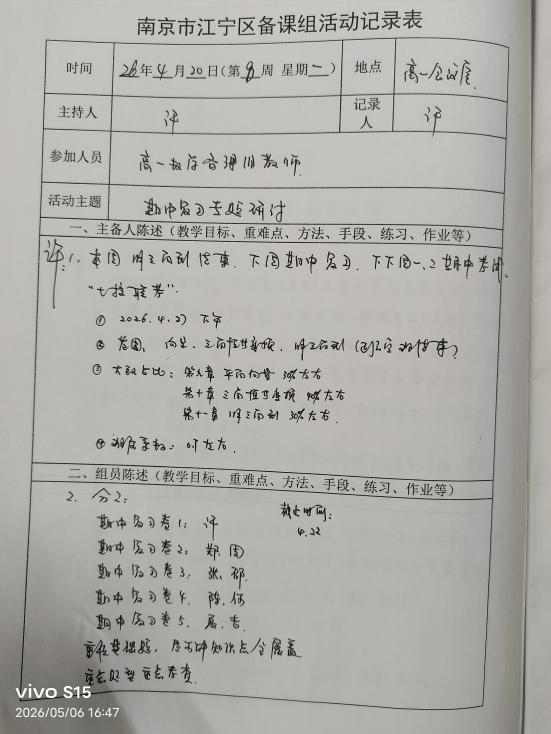 南京市江宁区备课组活动记录表
时间 26年4月20日(第8周 星期一) 地点 高一会议室
主持人 许 记录人 许
参加人员 高一数学 教师.
活动主题 期中复习专题研讨
一、主备人陈述（教学目标、重难点、方法、手段、练习、作业等）
许: 1. 本周 解三角形结束. 下周期中复习. 下下周一.二期中考试.
"七校联考".
① 2026.4.27 下午
② 范围: 向量. 三角恒等变换. 解三角形
③ 大致占比: 第九章 平面向量 30%左右
第十章 三角恒等变换 40%左右
第十一章 解三角形 30%左右.
④ 难度系数: 0.7左右.
二、组员陈述（教学目标、重难点、方法、手段、练习、作业等）
2. 分工: 截止时间:
4.22
期中复习卷1: 许
期中复习卷2: 郑 周
期中复习卷3. 张.
期中复习卷4. 陈. 何
期中复习卷5.
重在基础题, 知识点全覆盖
重点题型重点考查.
vivo S15
2026/05/06 16:47